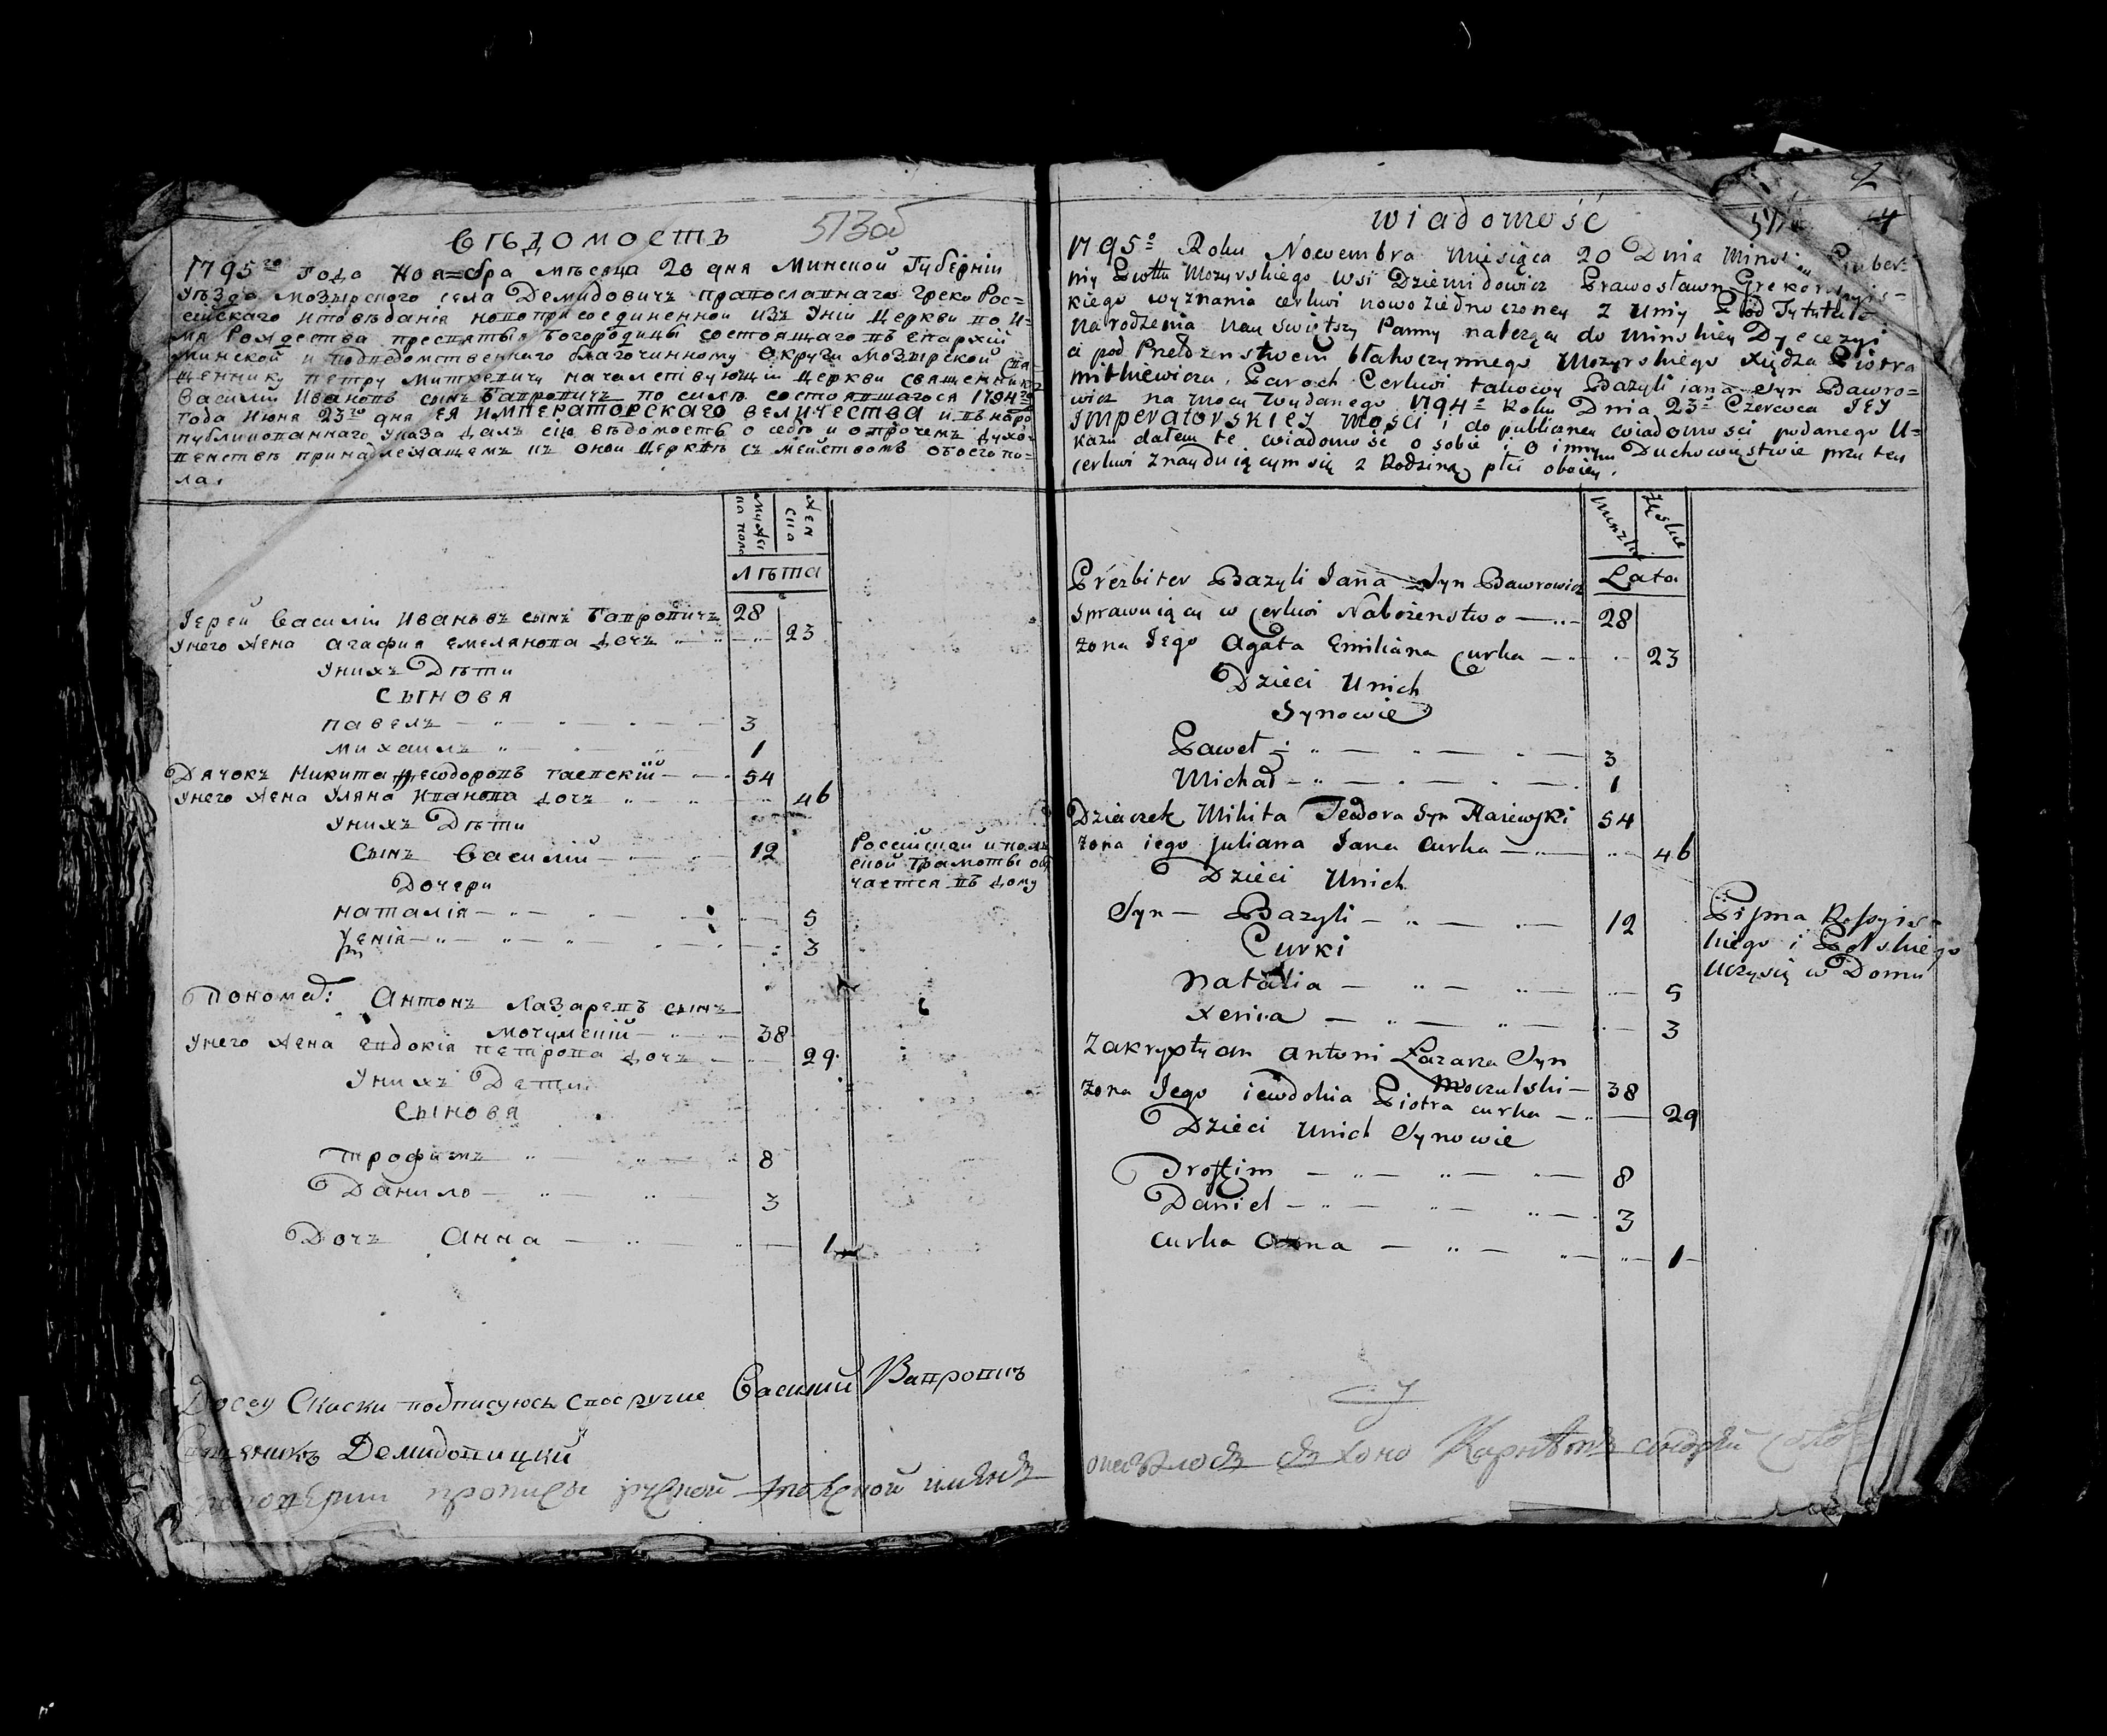 Вѣдомость
513об
1795го Года Ноя=бра мѣсяца 20 дня Минской Губерніи
Уѣзда Мозырского села Демидовичъ православнаго Греко Рос=
сійскаго исповѣданія новоприсоединенной изъ Уніи Церкви во И=
мя Рождества пресвятыя Богородицы состоящаго въ Епархіи
Минской и подведомственнаго благочинному Округи Мозырской Свя=
щеннику Петру Миткевичу началствующій Церкви священникъ
Василій Ивановъ сынъ Вавровичъ по силѣ состоявшагося 1794го
Года Июня 23го дня ЕЯ ИМПЕРАТОРСКАГО ВЕЛИЧЕСТВА и въ народ
публикованнаго Указа далъ сію вѣдомость о себѣ и о прочемъ духо=
венствѣ принадлежащемъ къ оной Церквѣ съ мействомъ обоего по=
ла.
Мужеска пола
Женска
Лѣта
Іерей Василій Ивановъ сынъ Вавровичъ 28
Унего жена Агафия Емелянова дочь 23
Унихъ Дѣти
Сыновя
Павелъ 3
Михаилъ 1
Дячокъ Никита Феодоровъ Гаевскій 54
Унего жена Уляна Иванова дочь 46
Унихъ Дѣти
Сынъ Василій 12
Россійской и пол
ской Грамоты об
чается въ дому
Дочери
Наталія 5
Ксенія 3
Понома: Антонъ Лазаревъ сынъ
Мочулскій 38
Унего жена Евдокія Петрова дочь 29
Унихъ Дети
Сыновя
Трофимъ 8
Данило 3
Дочь Анна 1
Досеу Скаски подписуюсь своеручне Василий Вавровичъ
Священикъ Демидовицкий
2
4
wiadomość
1795o Roku Nowembra Miesiąca 20 Dnia Minskiey Guber=
nij Powiatu Mozyrskiego wsi Dziemidowicz Prawosławn Grekorossyis=
kiego wyznania cerkwi nowoziednoczoney z Unij Pod Tytułe
Narodzenia nay swiętszy Panny należącą do Minskiey Dyecezyi
ci pod Przełdzenstwem błahoczynnego Mozyrskiego xiędza Piotra
Mitkiewicza, Paroch Cerkwi takowey Bazyli iana Syn Bawro=
wicz na mocy wydanego 1794o Roku Dnia 23o Czerwca JEY
IMPERATORSKIEY Mości i do publiczney wiadomosci podanego U=
kazu dałem te wiadomość o sobie i o innym Duchowęstwie przy tey
cerkwi znayduiącym się z Rodziną płci oboiey.
Męzka
Żęska
Lata
Prezbiter Bazyli Jana Syn Bawrowicz
Sprawuiący w Cerkwi Nabożenstwo 28
żona Jego Agata Emiliana Curka 23
Dzieci Unich
Synowie
Paweł 3
Michał 1
Dziaczek Mikita Teodora Syn Haiewski 54
żona iego juliana Jana Curka 46
Dzieci Unich
Syn Bazyli 12
Pisma Rossyis=
kiego i Polskiego
uczy się w Domu
Curki
Natalia 5
Xenia 3
Zakrystyan Antoni Łazarza Syn
Moczulski 38
żona Jego iewdokia Piotra curka 29
Dzieci Unich Synowie
Trofim 8
Daniel 3
curka Anna 1